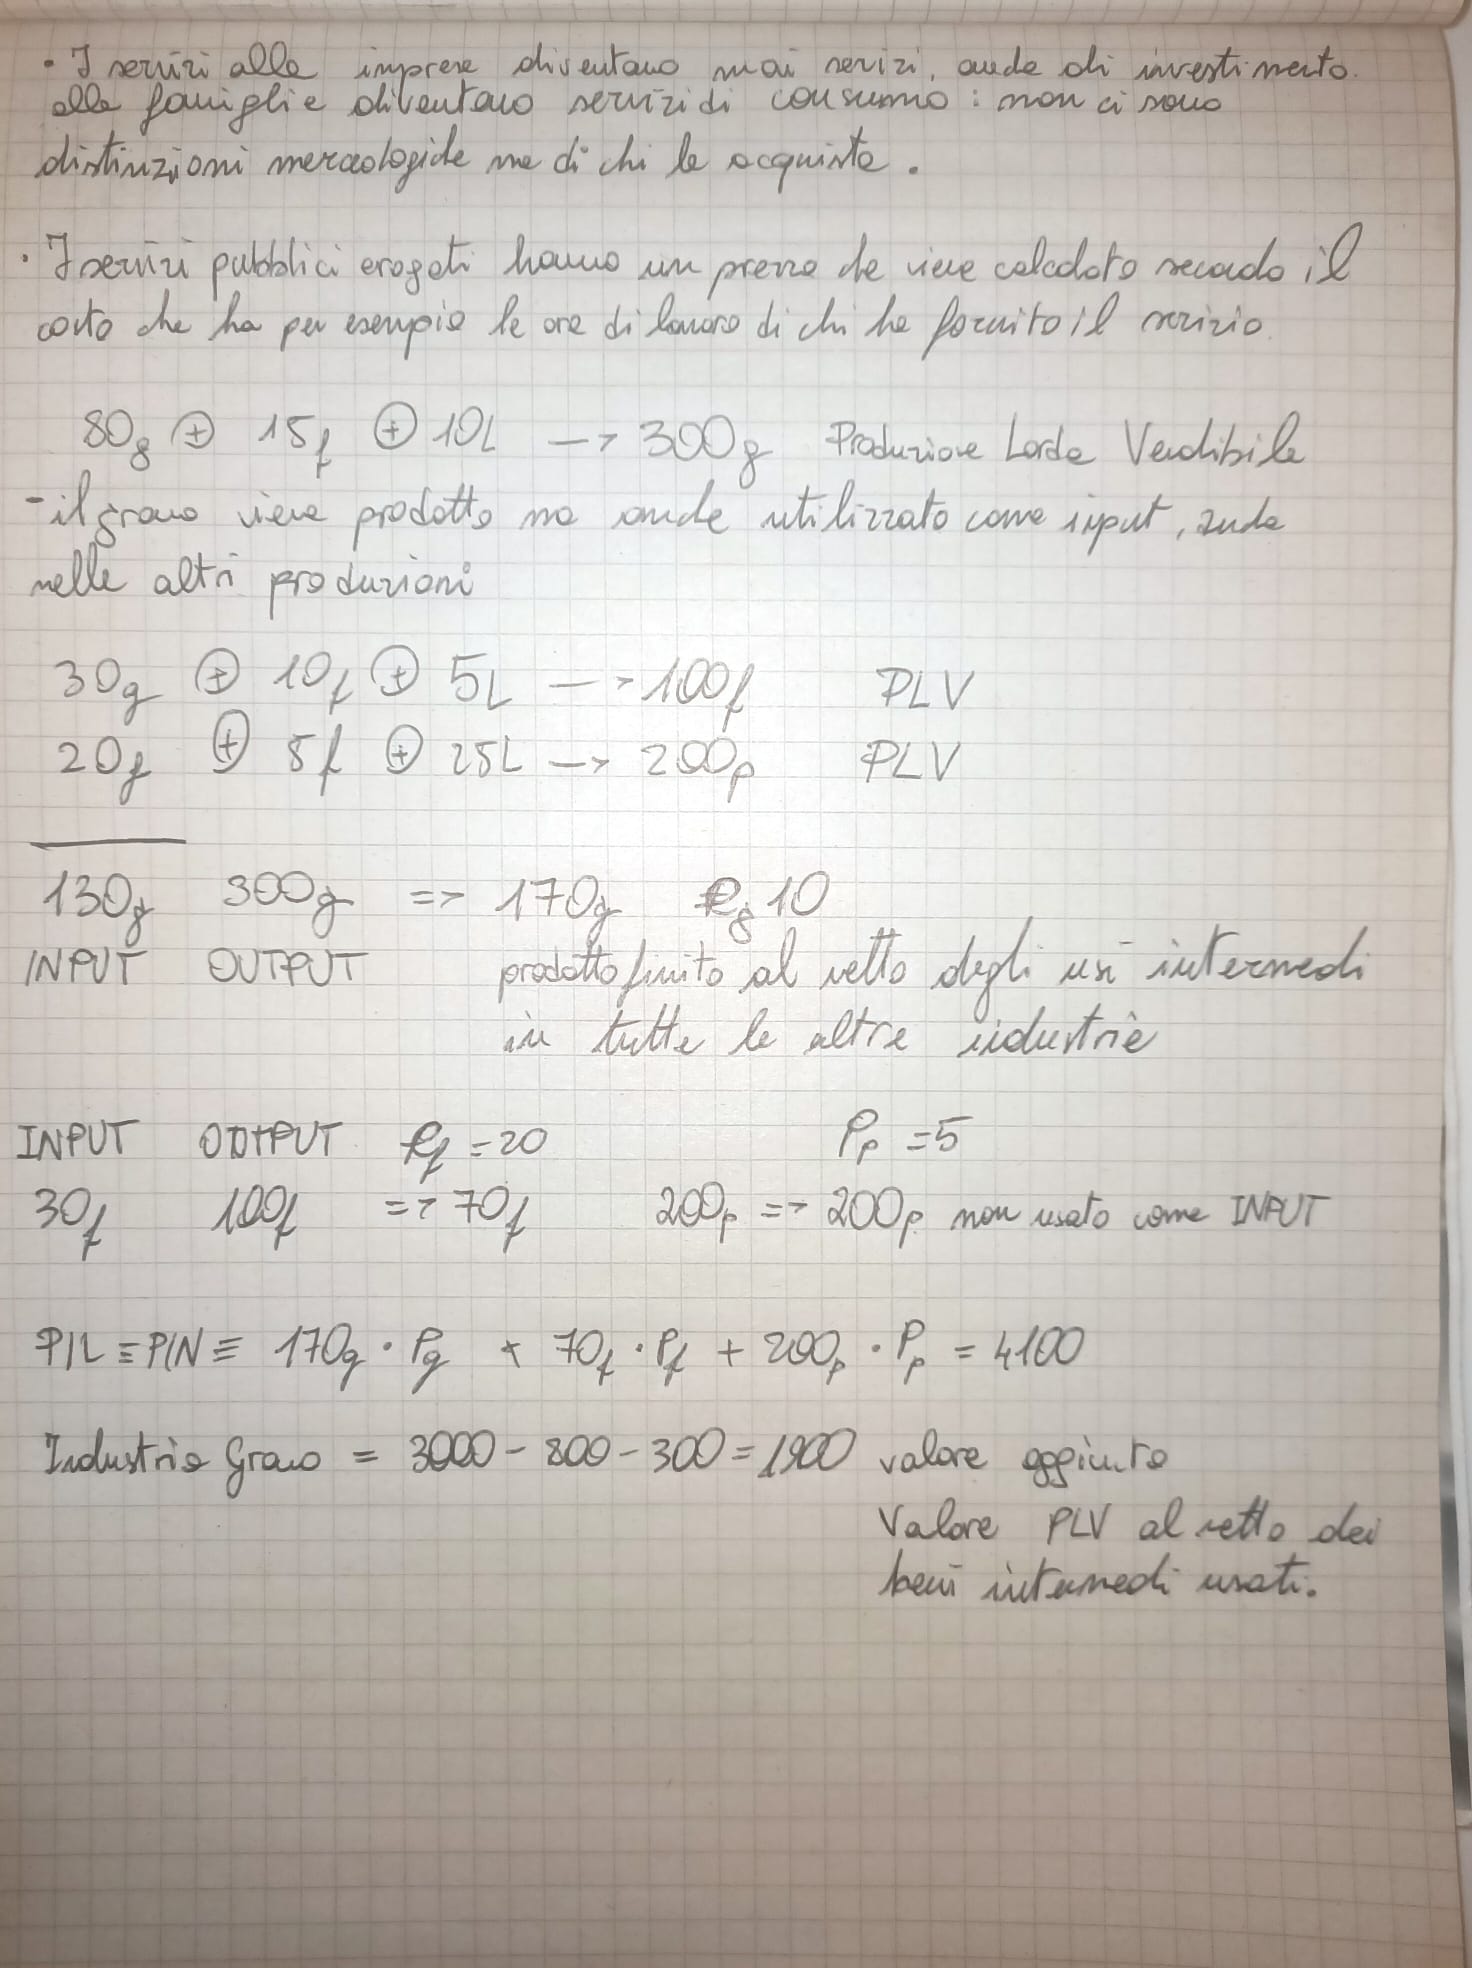 • I servizi alle imprese diventano mai servizi, anche di investimento.
alle famiglie diventano servizi di consumo : non ci sono
distinzioni merceologiche ma di chi le acquista.
• I servizi pubblici erogati hanno un prezzo che viene calcolato secondo il
costo che ha per esempio le ore di lavoro di chi ha fornito il servizio.
80g ⊕ 15f ⊕ 10L —> 300g Produzione Lorda Vendibile
- il grano viene prodotto ma anche utilizzato come input, anche
nelle altri produzioni
30g ⊕ 10f ⊕ 5L —> 100f PLV
20g ⊕ 5f ⊕ 25L —> 200p PLV
130g 300g => 170g Pg 10
INPUT OUTPUT prodotto finito al netto degli usi intermedi
in tutte le altre industrie
INPUT OUTPUT Pf = 20 Pp = 5
30f 100f => 70f 200p => 200p non usato come INPUT
PIL ≡ PIN ≡ 170g · Pg + 70f · Pf + 200p · Pp = 4100
Industria Grano = 3000 - 800 - 300 = 1900 valore aggiunto
Valore PLV al netto dei
beni intermedi usati.